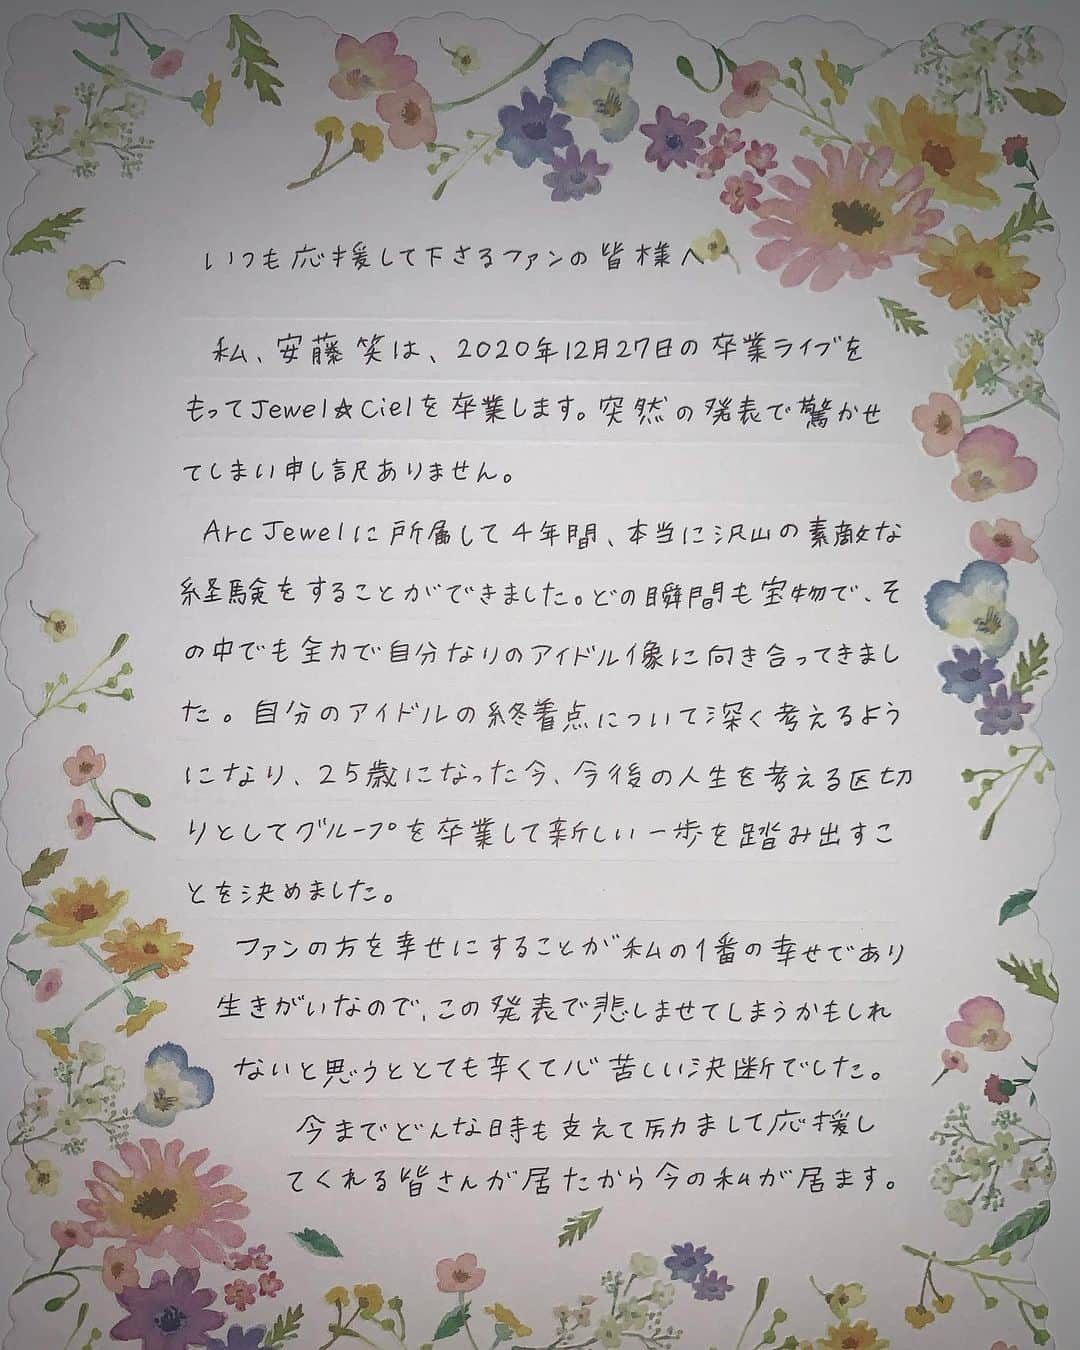 いつも応援して下さるファンの皆様へ
私、安藤笑は、2020年12月27日の卒業ライブを
もってJewel☆Cielを卒業します。突然の発表で驚かせ
てしまい申し訳ありません。
Arc Jewelに所属して4年間、本当に沢山の素敵な
経験をすることができました。どの瞬間も宝物で、そ
の中でも全力で自分なりのアイドル像に向き合ってきまし
た。自分のアイドルの終着点について深く考えるよう
になり、25歳になった今、今後の人生を考える区切
りとしてグループを卒業して新しい一歩を踏み出すこ
とを決めました。
ファンの方を幸せにすることが私の1番の幸せであり
生きがいなので、この発表で悲しませてしまうかもしれ
ないと思うととても辛くて心苦しい決断でした。
今までどんな時も支えて励まして応援し
てくれる皆さんが居たから今の私が居ます。